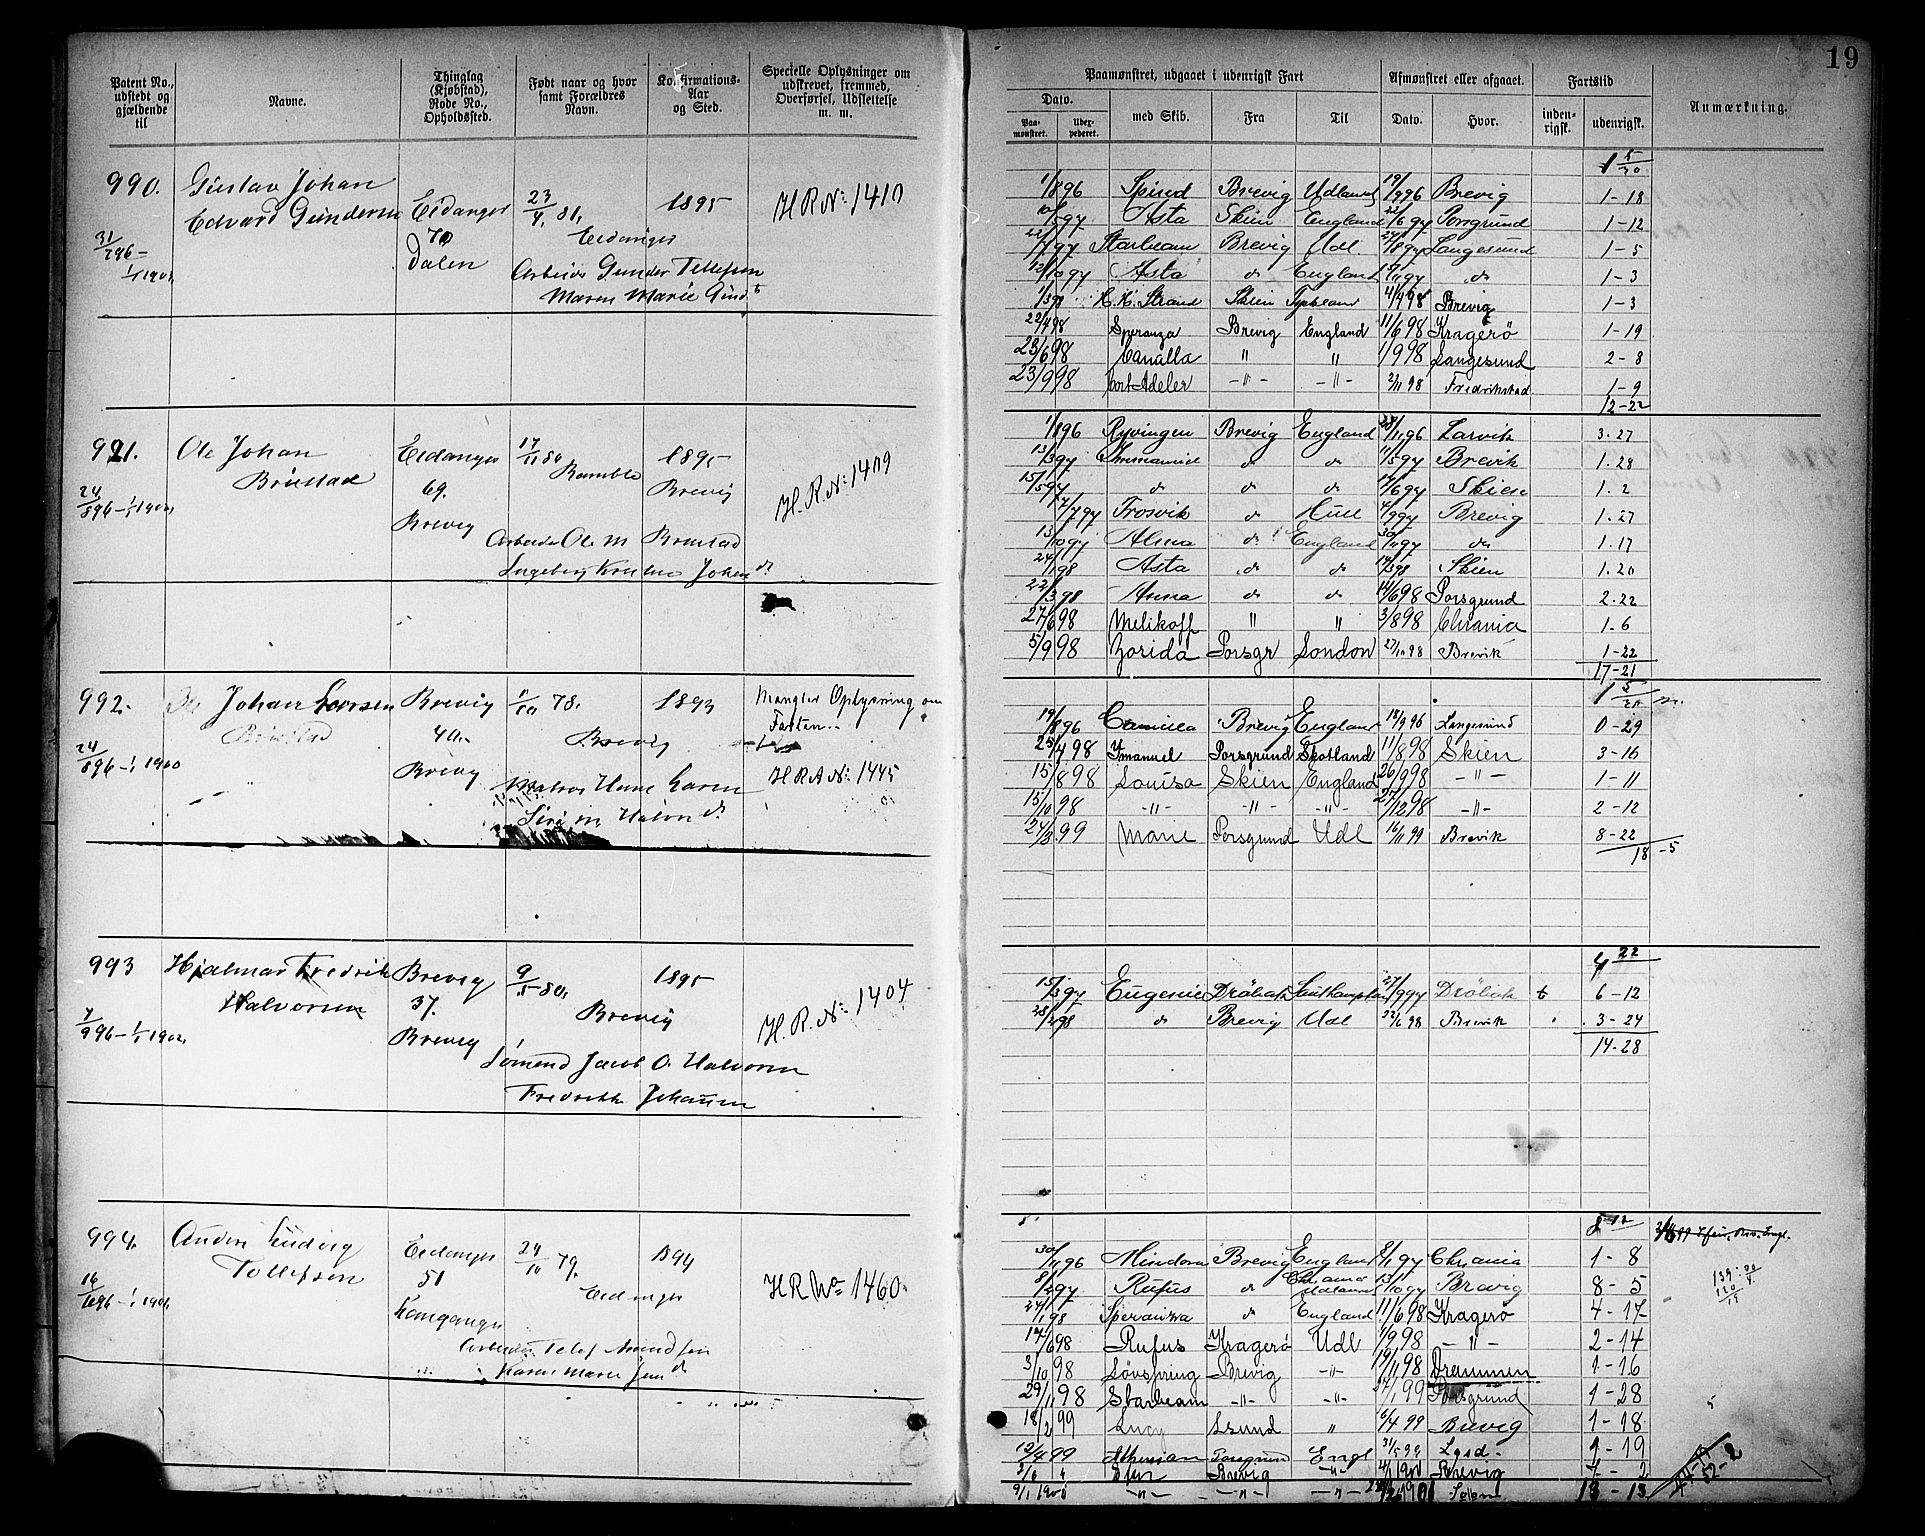 19
Patent No., udstedt og gjældende til
Navne.
Thinglag (Kjøbstad), Rode No., Opholdssted.
Født naar og hvor samt Forældres Navn.
Konfirmations-Aar og Sted.
Specielle Oplysninger om udskrevet, fremmed, Overførsel, Udslettelse m. m.
Paamønstret, udgaaet i udenrigsk Fart
Afmønstret eller afgaaet.
Fartstid
Anmærkning.
Dato.
Paamønstret.
med Skib.
Fra
Til
Dato.
Hvor.
indenrigsk.
udenrigsk.
990.
Gustav Johan
Edvard Gundersen
Eidanger
70
Dalen
23/4 81,
Eidanger
Arbeider Gunder Tellefsen
Maren Marie Gund
1895
H R No: 1410
1/8 96 Spind Brevig Udlandet 19/9 96 Brevig 1-18
Asta Skien England Porsgrund 1-12
Starbeam Brevig Udl. Langesund 1-5
12/10 97 Asta do England do 1-3
H. H. Strand Skien 4/4 98 Brevig 1-3
22/4 98 Speranza Brevig England 11/6 98 Kragerø 1-19
23/6 98 Canalla " " 1/9 98 Langesund 2-8
23/9 98 Cort Adeler -"- -"- 2/11 98 Fredrikstad 1-9
12-22
991.
Ole Johan
Brustad
Eidanger
69.
Brevig
17/11 80
Bamble
Arbeider Ole M Brustad
Ingeborg Kristine Johan
1895
Brevig
H. R. No: 1409
24/8 96 - 1/1 1902
1/8 96 Ryvingen Brevig England 28/11 96 Larvik 3-27
13/3 97 do do 11/5 97 Brevik 1.28
15/5 97 do do do Skien 1.2
17/7 97 Frosvik do Hull 4/9 97 Brevig 1.27
13/10 97 Alma do England 30/11 97 do 1.17
24/1 98 Asta do do 14/3 98 Skien 1.20
22/3 98 Anna do do 14/6 98 Porsgrund 2.22
27/6 98 Melikoff " " 3/8 98 Chrania 1-6
5/9 98 Zorida Porsgr London 27/10 98 Brevik 1-22
17-21
992.
Ole Johan Larsen
Brustad
Brevig
40.
Brevig
1/10 78.
Brevig
Matros Hans Larsen
1893
Mangler Oplysning om
Farten
H R A No: 1445
24/8 96 - 1/1 1900
19/8 96 Camilla Brevig England 18/9 96 Langesund 0-29
25/4 98 Imanuel Porsgrund Skotland 11/8 98 Skien 3-16
15/8 98 Louisa Skien England 26/9 98 -"- 1-11
15/10 98 -"- -"- -"- 27/12 98 -"- 2-12
24/3 99 Marie Porsgrund Udl 16/11 99 Brevik 8-22
18-5
993
Hjalmar Fredrik
Halvorsen
Brevig
37.
Brevig
9/5 80,
Brevig
Sømand Jacob O. Halvorsen
Fredrikke Johansen
1895
H. R. No: 1404
7/9 96 - 1/1 1902
15/3 97 Eugenie Drøbak Southampton 27/9 97 Drøbak 6-12
28/2 98 do Brevig Udl 22/6 98 Brevik 3-24
14-28
994.
Anders Ludvig
Tollefsen
Eidanger
51
24/10 79,
Eidanger
Arbeider Telef Amundsen
Karen Marie Jens
1894
H R No 1460.
30/11 96 Mindora Brevig England 8/1 97 Chrania 1-8
8/2 97 Rufus do 13/10 97 Brevig 8-5
24/1 98 Speranza do England 11/6 98 Kragerø 4-17
17/6 98 Rufus Kragerø Udl 1/9 98 -"- 2-14
3/10 98 Løvspring Brevig -"- 19/11 98 Drammen 1-16
29/11 98 Starbeam -"- -"- 27/1 99 Porsgrund 1-28
18/2 99 Lucy Lsund " 6/4 99 Brevig 1-18
12/4 99 Porsgrund Engl 31/5 99 Lgsd. 1-19
3/6 " Brevig -"- 1900 Brevig 7-2
9/1 1900 -"- -"- -"- 13-13
52-2